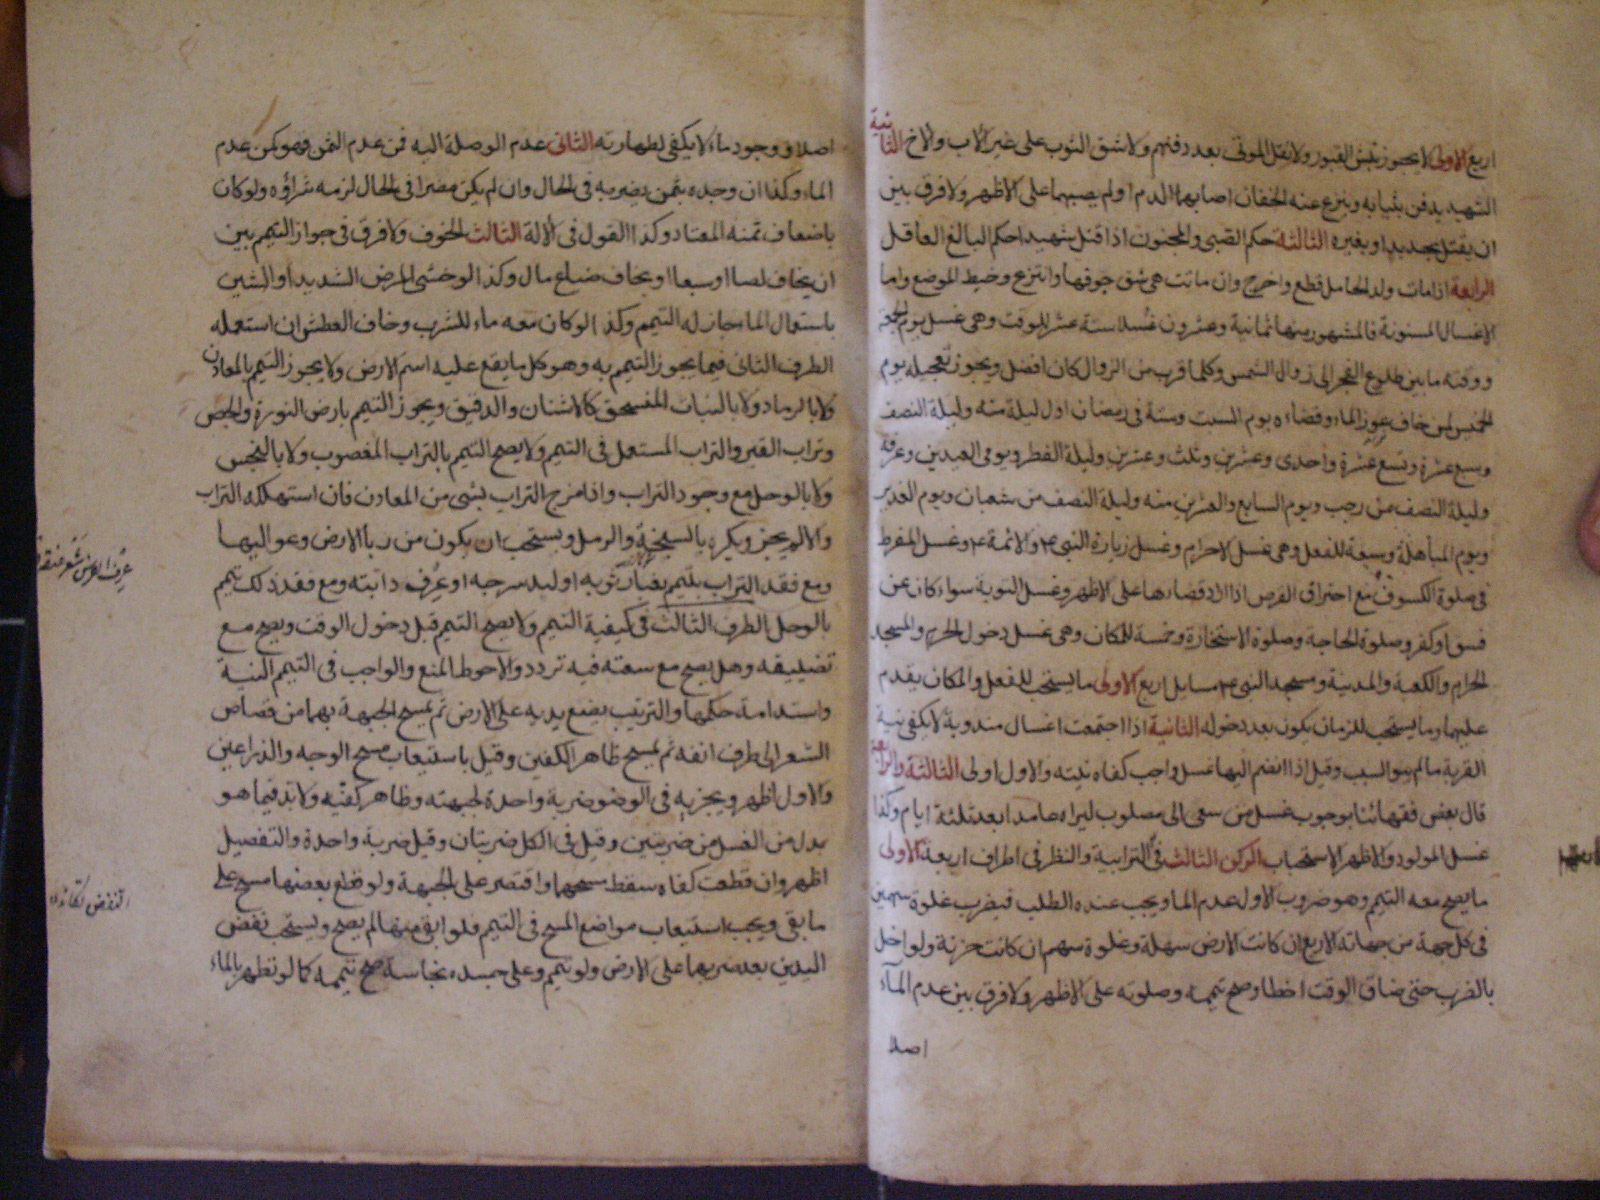 اربع الاولى لا يجوز نبش القبور ولا نقل الموتى بعد دفنهم ولا شق الثوب على غير الاب والاخ الثانية
الشهيد يدفن بثيابه وينزع عنه الخفان اصابهما الدم او لم يصبهما على الاظهر ولا فرق بين
ان يقتل بحديد او بغيره الثالثة حكم الصبى والمجنون اذا قتل شهيدا حكم البالغ العاقل
الرابعة اذا مات ولد الحامل قطع واخرج وان ماتت هى شق جوفها وانتزع وخيط الموضع واما
الاغسال المسنونة فالمشهور منها ثمانية وعشرون غسلا ستة عشر للوقت وهى غسل يوم الجمعة
ووقته ما بين طلوع الفجر الى زوال الشمس وكلما قرب من الزوال كان افضل ويجوز تعجيله يوم
الخميس لمن خاف عوز الماء وقضاءه يوم السبت وستة فى رمضان اول ليلة منه وليلة النصف
وسبع عشرة وتسع عشرة واحدى وعشرين وثلث وعشرين وليلة الفطر ويومى العيدين وعرفة
وليلة النصف من رجب ويوم السابع والعشرين منه وليلة النصف من شعبان ويوم الغدير
ويوم المباهلة وسبعة للفعل وهى غسل الاحرام وغسل زيارة النبى ص والائمة ع وغسل المفرط
فى صلوة الكسوف مع احتراق القرص اذا اراد قضاءها على الاظهر وغسل التوبة سواء كان عن
فسق او كفر وصلوة الحاجة وصلوة الاستخارة وخمسة للمكان وهى غسل دخول الحرم والمسجد
الحرام والكعبة والمدينة ومسجد النبى ص مسايل اربع الاولى ما يستحب للفعل والمكان يقدم
عليهما وما يستحب للزمان يكون بعد دخوله الثانية اذا اجتمعت اغسال مندوبة لا يكفى نية
القربة ما لم ينو السبب وقيل اذا انضم اليها غسل واجب كفاه نيته والاول اولى الثالثة والرابعة
قال بعض فقهائنا بوجوب غسل من سعى الى مصلوب ليراه عامدا بعد ثلثة ايام وكذا
غسل المولود والاظهر الاستحباب الركن الثالث فى الترابية والنظر فى اطراف اربعة الاولى
ما يصح معه التيمم وهو ضروب الاول عدم الماء ويجب عنده الطلب فيضرب غلوة سهمين
فى كل جهة من جهاته الاربع ان كانت الارض سهلة وغلوة سهم ان كانت حزنة ولو اخل
بالضرب حتى ضاق الوقت اخطا وصح تيممه وصلوته على الاظهر ولا فرق بين عدم الماء
اصلا
اصلا و وجود ماء لا يكفى لطهارته الثانى عدم الوصلة اليه فمن عدم الثمن فهو كمن عدم
الماء وكذا ان وجده بثمن يضر به فى الحال وان لم يكن مضرا فى الحال لزمه شراؤه ولو كان
باضعاف ثمنه المعتاد وكذا القول فى الالة الثالث الخوف ولا فرق فى جواز التيمم بين
ان يخاف لصا او سبعا او يخاف ضياع مال وكذا لو خشى المرض الشديد او الشين
باستعمال الماء جاز له التيمم وكذا لو كان معه ماء للشرب وخاف العطش ان استعمله
الطرف الثانى فيما يجوز التيمم به وهو كل ما يقع عليه اسم الارض ولا يجوز التيمم بالمعادن
ولا بالرماد ولا بالنبات المنسحق كالاشنان والدقيق ويجوز التيمم بارض النورة والجص
وتراب القبر والتراب المستعمل فى التيمم ولا يصح التيمم بالتراب المغصوب ولا بالنجس
ولا بالوحل مع وجود التراب واذا مزج التراب بشى من المعادن فان استهلكه التراب
والا لم يجز ويكره بالسبخة والرمل ويستحب ان يكون من ربا الارض وعواليها
ومع فقد التراب يتيمم بغبار ثوبه او لبد سرجه او عرف دابته ومع فقد ذلك تيمم
بالوحل الطرف الثالث فى كيفية التيمم ولا يصح التيمم قبل دخول الوقت ويصح مع
تضييقه وهل يصح مع سعته فيه تردد والاحوط المنع والواجب فى التيمم النية
واستدامة حكمها والترتيب يضع يديه على الارض ثم يمسح الجبهة بهما من قصاص
الشعر الى طرف انفه ثم يمسح ظاهر الكفين وقيل باستيعاب مسح الوجه والذراعين
والاول اظهر ويجزيه فى الوضوء ضربة واحدة لجبهته وظاهر كفيه ولا بد فيما هو
بدل من الغسل من ضربتين وقيل فى الكل ضربتان وقيل ضربة واحدة والتفصيل
اظهر وان قطعت كفاه سقط مسحهما واقتصر على الجبهة ولو قطع بعضها مسح على
ما بقى ويجب استيعاب مواضع المسح فى التيمم فلو ابقى منها لم يصح ويستحب نفض
اليدين بعد ضربهما على الارض ولو تيمم وعلى جسده نجاسة صح تيممه كما لو تطهر بالماء
عرف الفرس شعر عنقه